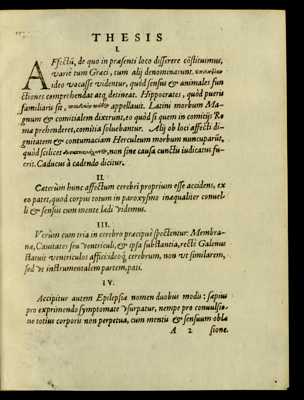 THESIS
I.
AFfectũ, de quo in præsenti loco disserere cõstituimus,
varie tum Græci, tum alij denominarunt.
ideo vocasse videntur, quòd sensus & animales fun
ctiones comprehendat atq; detineat. Hippocrates, quòd pueris
familiaris sit, appellauit. Latini morbum Ma-
gnum & comitialem dixerunt, eo quòd si quem in comitijs Ro
mæ prehenderet, comitia soluebantur. Alij ob loci affecti di-
gnitatem & contumaciam Herculeum morbum nuncuparũt,
quòd scilicet non sine causa cunctis iudicatus fu-
erit. Caducus à cadendo dicitur.
II.
Cæterùm hunc affectum cerebri proprium esse accidens, ex
eo patet, quod corpus totum in paroxysmo inæqualiter conuel-
li & sensus cum mente lædi videmus.
III.
Verùm cum tria in cerebro præcipuè spectentur: Membra-
næ, Cauitates seu ventriculi, & ipsa substantia, recti Galenus
statuit ventriculos affici ideoq; cerebrum, non vt similarem,
sed vt instrumentalem partem, pati.
IV.
Accipitur autem Epilepsiæ nomen duobus modis: sæpius
pro exprimendo symptomate vsurpatur, nempe pro conuulsio-
ne totius corporis non perpetua, cum mentis & sensuum oblæ
A 2 sione.